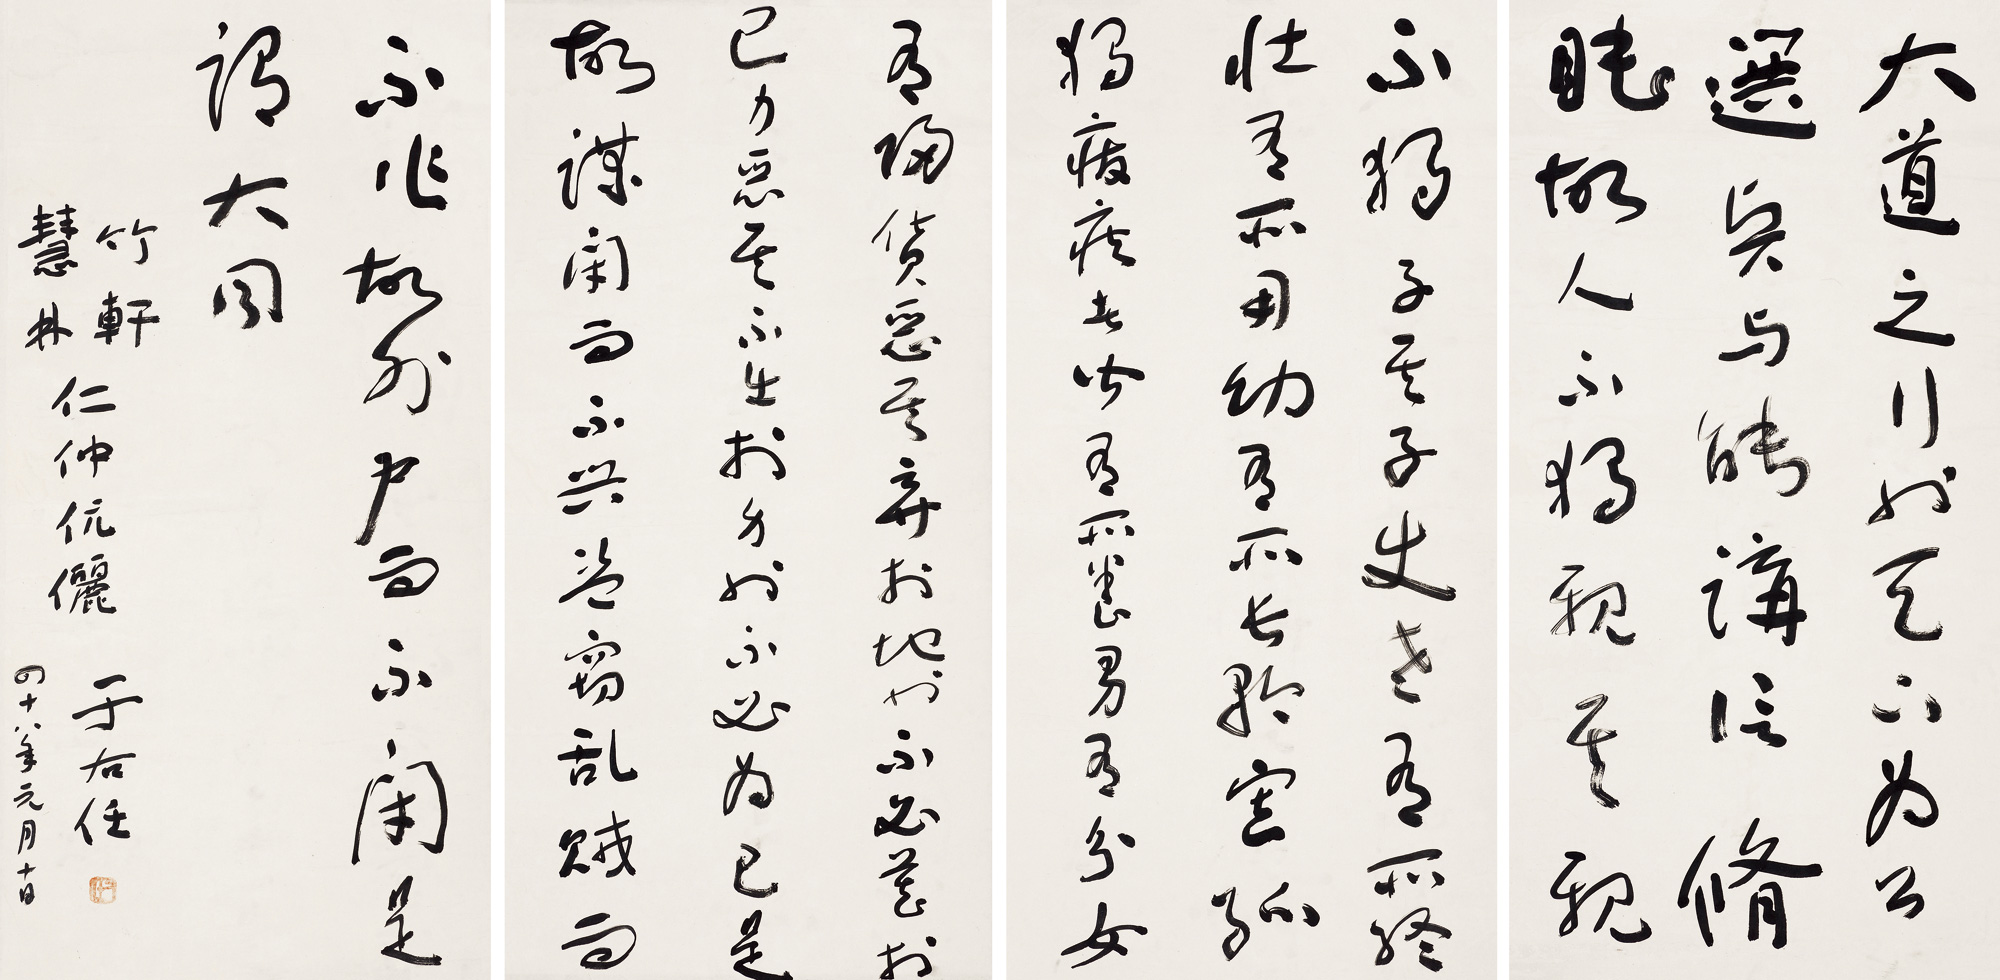 大道之行也天下為公
選賢与能講信脩
睦故人不獨親其親
不獨子其子使老有所終
壯有所用幼有所長矜寡孤
獨廢疾者皆有所養男有分女
有歸貨惡其棄於地也不必藏於
己力惡其不出於身也不必為己是
故謀閉而不興盜竊乱賊而
不作故外戶而不閉是
謂大同
竹軒
慧林
仁仲伉儷
于右任
四十八年元月十日